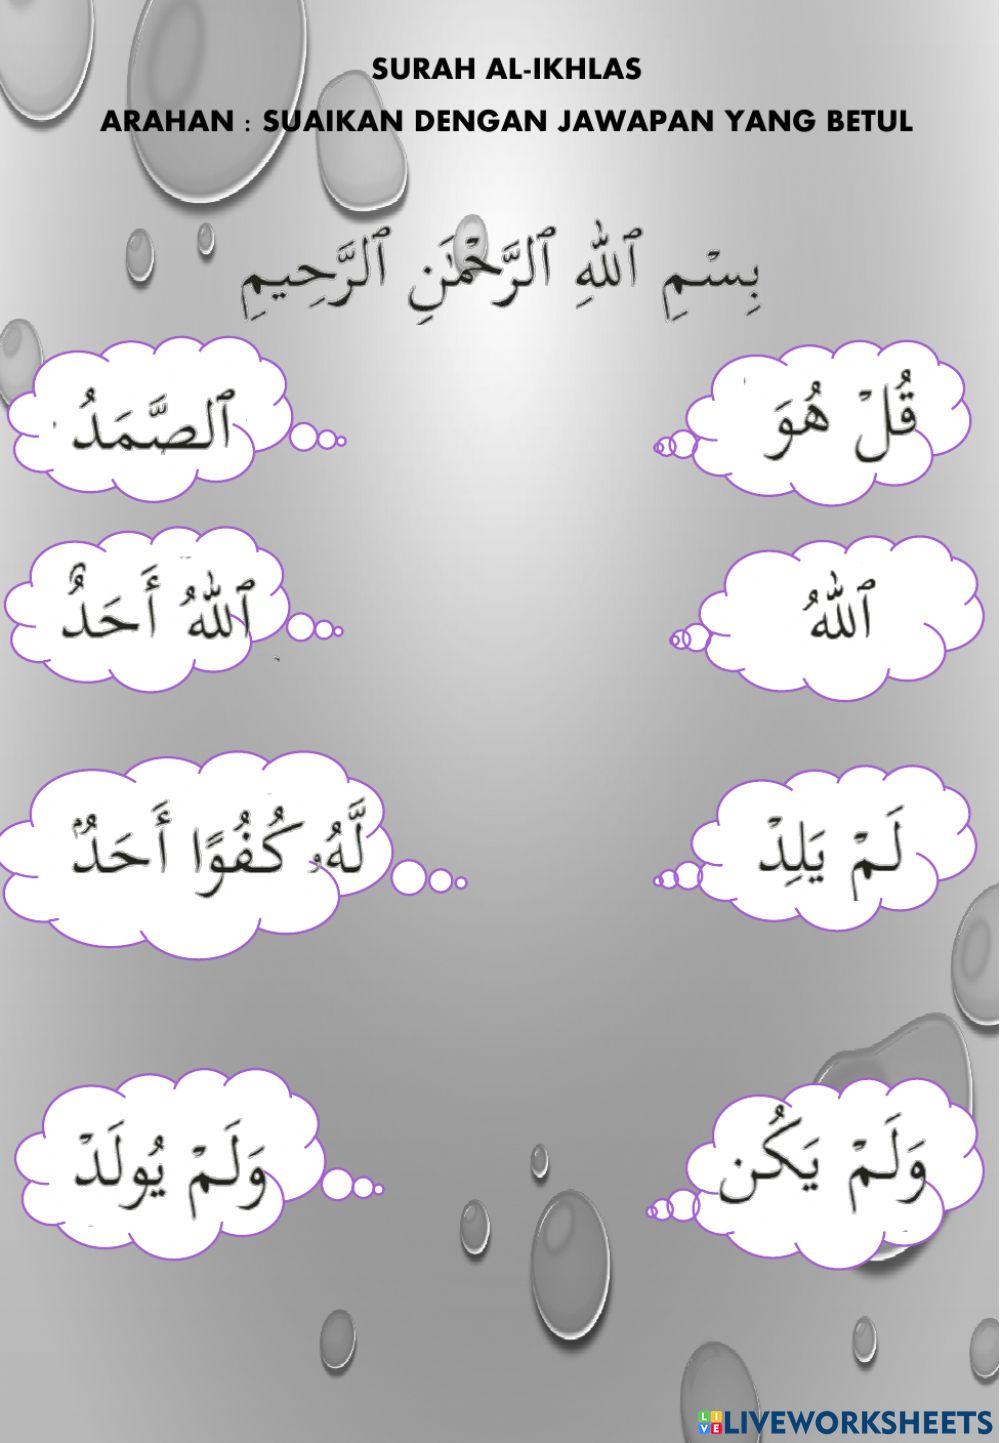 SURAH AL-IKHLAS
ARAHAN : SUAIKAN DENGAN JAWAPAN YANG BETUL
بِسْمِ ٱللَّهِ ٱلرَّحْمَٰنِ ٱلرَّحِيمِ
قُلْ هُوَ
ٱلصَّمَدُ
ٱللَّهُ
ٱللَّهُ أَحَدٌ
لَمْ يَلِدْ
لَّهُۥ كُفُوًا أَحَدٌۢ
وَلَمْ يَكُن
وَلَمْ يُولَدْ
LIVEWORKSHEETS